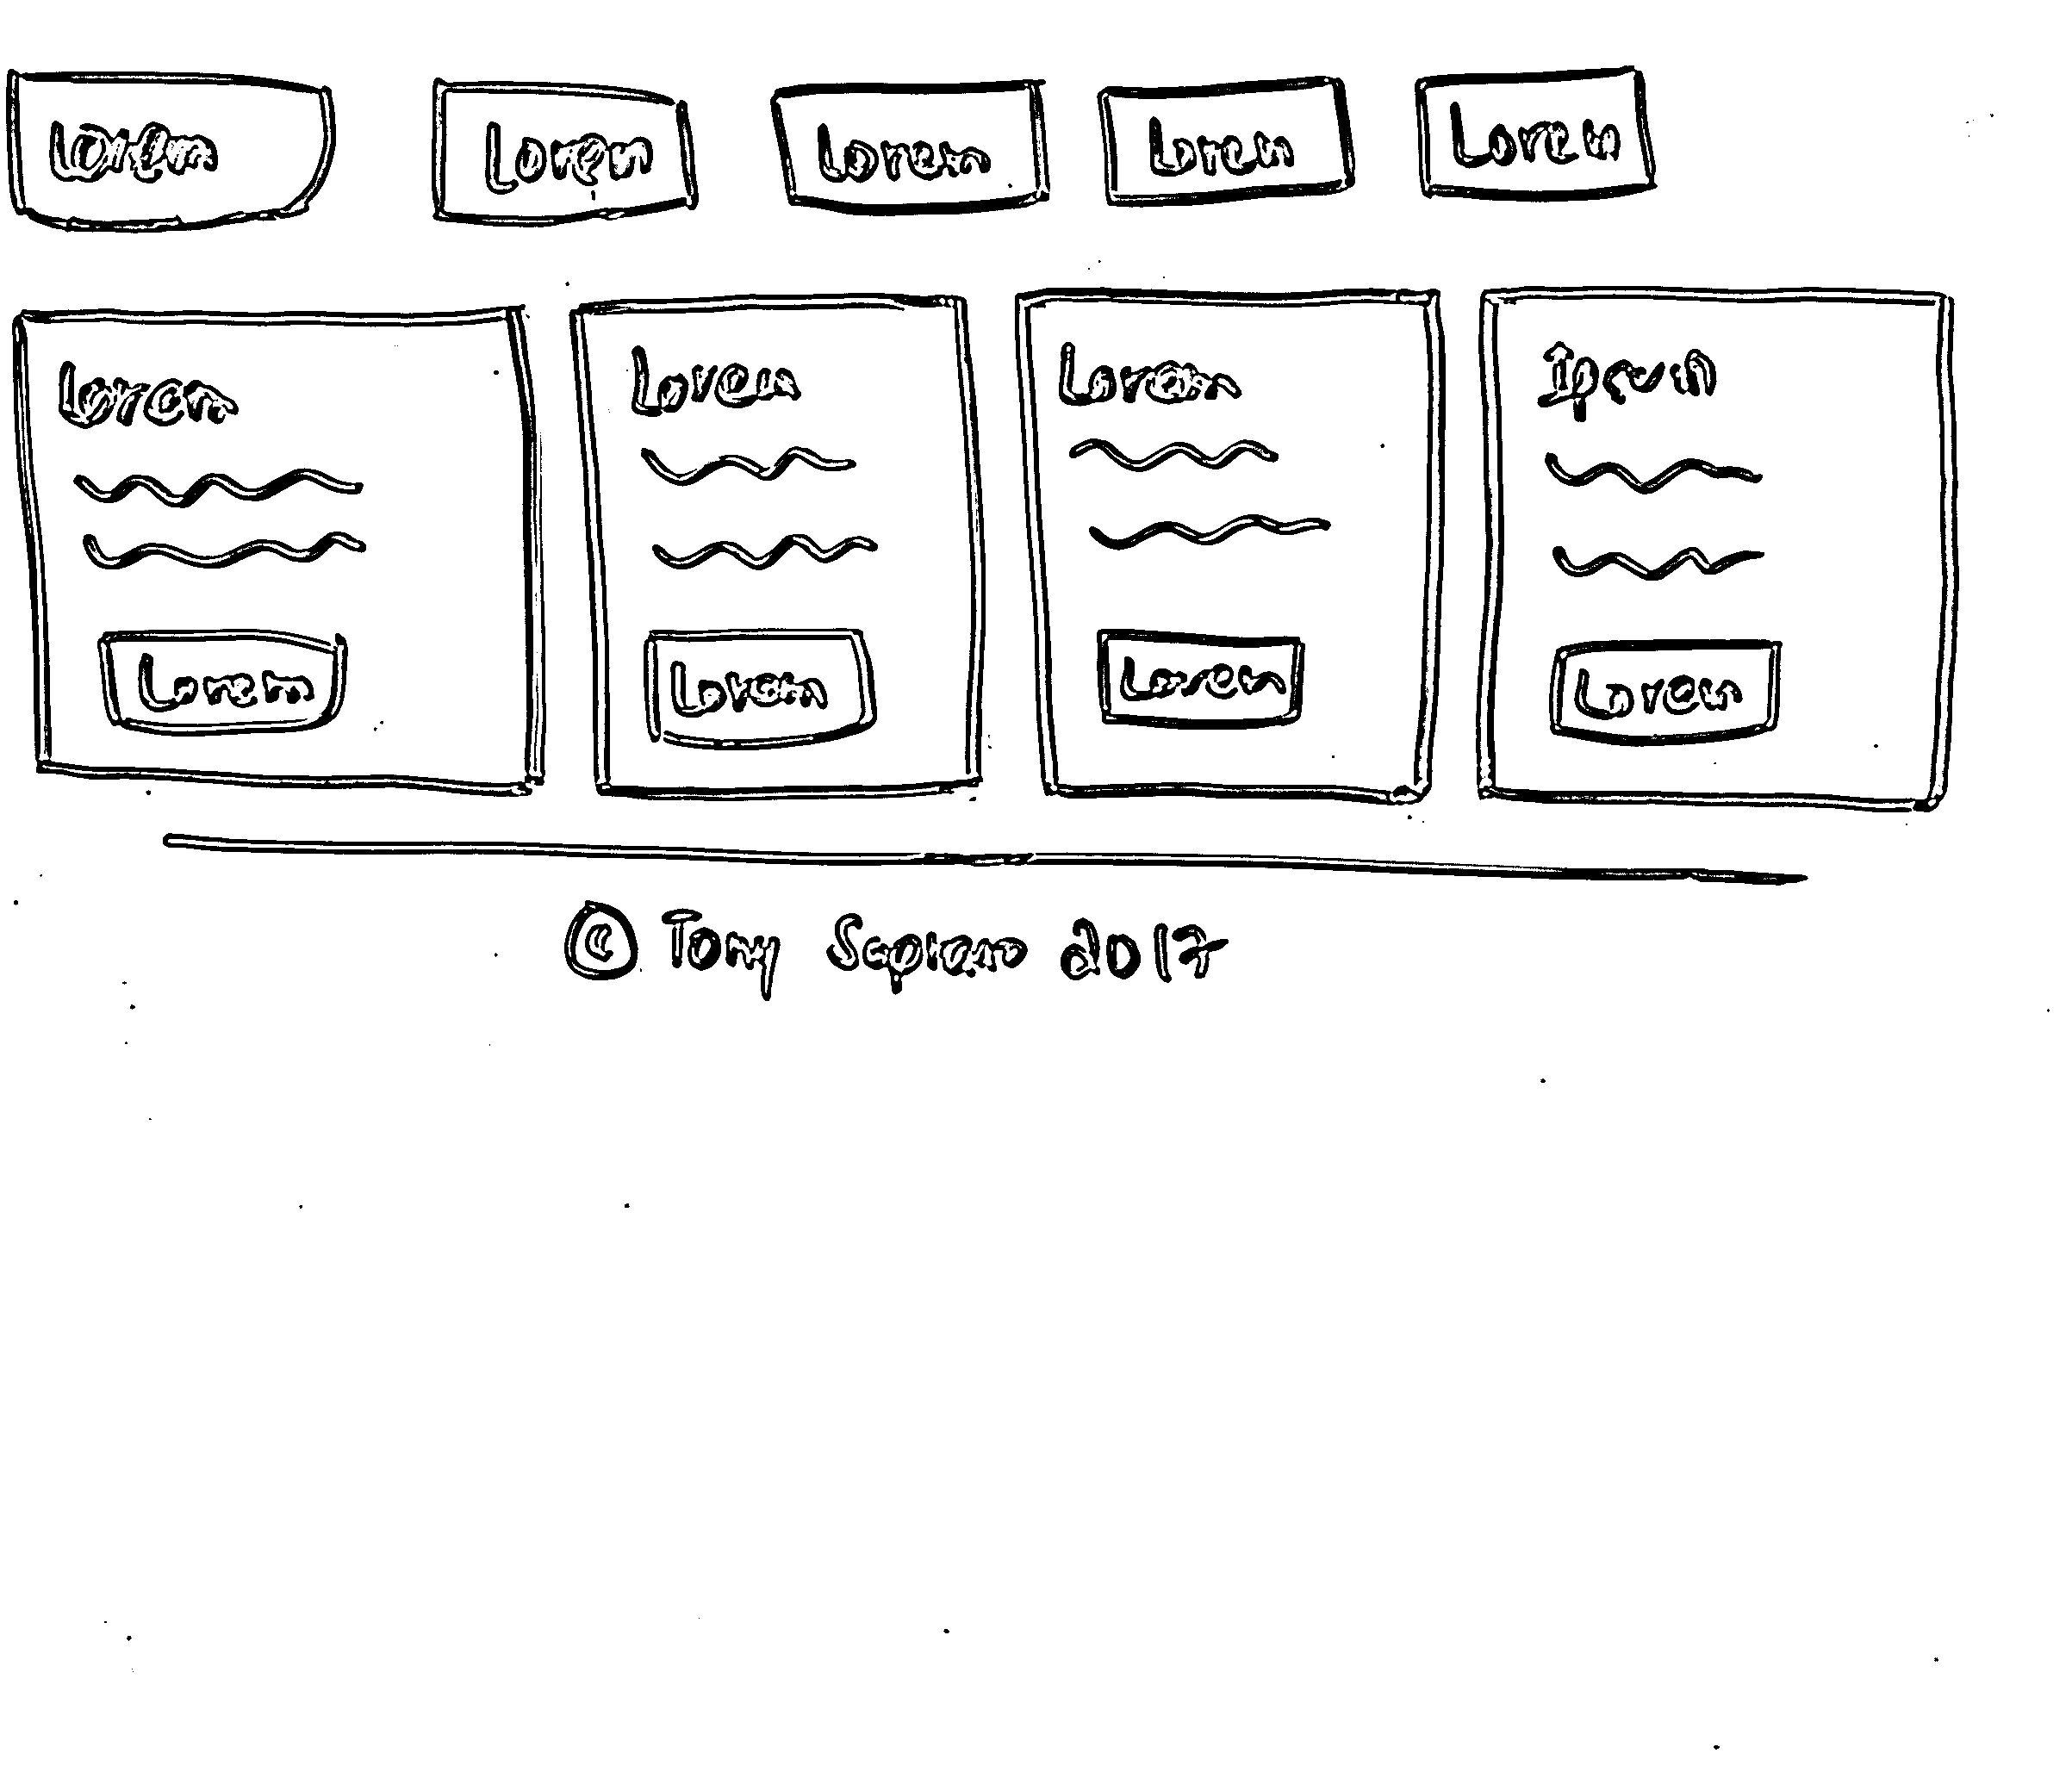 Lorem Lorem Lorem Lorem Lorem
Lorem Lorem Lorem Ipsum
Lorem Lorem Lorem Lorem
© Tony Soprano 2017